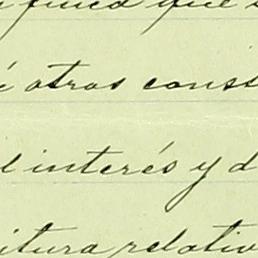 finca que
é otras cons
l interés y d
itura relativ